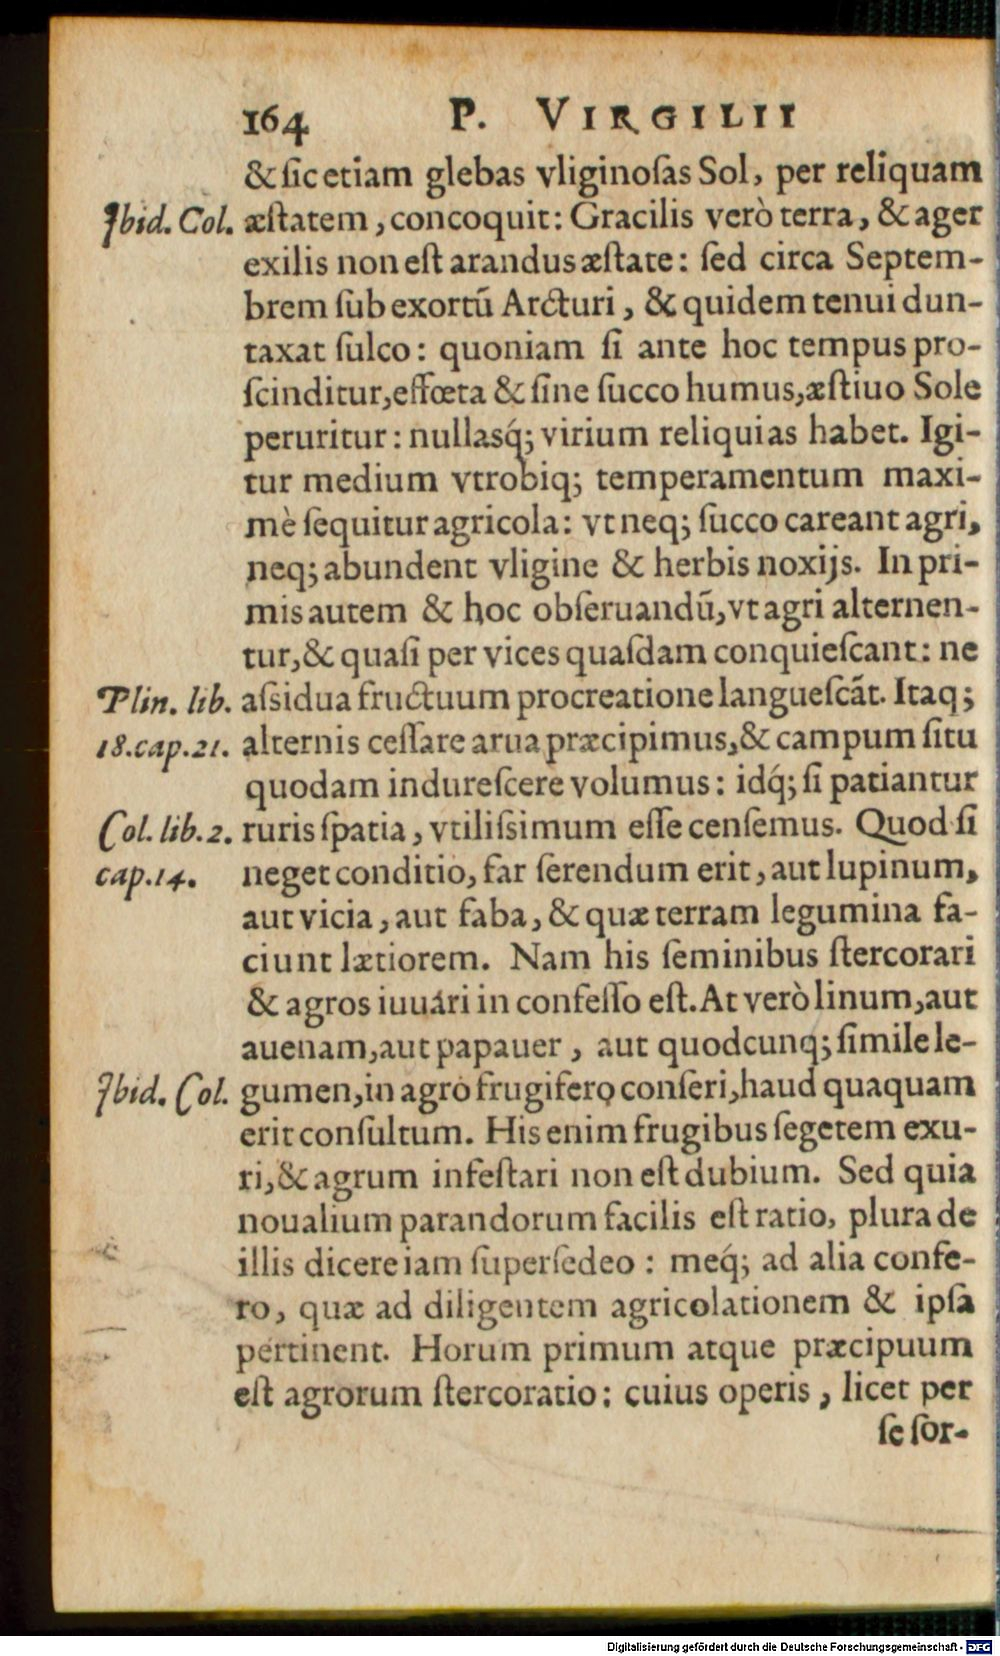 164 P. VIRGILII
& ſic etiam glebas vliginoſas Sol, per reliquam
Ibid. Col. æſtatem, concoquit: Gracilis verò terra, & ager
exilis non eſt arandus æſtate: ſed circa Septem-
brem ſub exortū Arcturi, & quidem tenui dun-
taxat ſulco: quoniam ſi ante hoc tempus pro-
ſcinditur, effœta & ſine ſucco humus, æſtiuo Sole
peruritur: nullasq́; virium reliquias habet. Igi-
tur medium vtrobiq; temperamentum maxi-
mè ſequitur agricola: vt neq; ſucco careant agri,
neq; abundent vligine & herbis noxijs. In pri-
mis autem & hoc obſeruandū, vt agri alternen-
tur, & quaſi per vices quaſdam conquieſcant: ne
Plin. lib. aſsidua fructuum procreatione langueſcāt. Itaq;
18. cap. 21. alternis ceſſare arua præcipimus, & campum ſitu
quodam indureſcere volumus: idq́; ſi patiantur
Col. lib. 2. ruris ſpatia, vtiliſsimum eſſe cenſemus. Quod ſi
cap. 14. neget conditio, far ſerendum erit, aut lupinum,
aut vicia, aut faba, & quæ terram legumina fa-
ciunt lætiorem. Nam his ſeminibus ſtercorari
& agros iuuari in confeſſo eſt. At verò linum, aut
auenam, aut papauer, aut quodcunq; ſimile le-
Ibid. Col. gumen, in agro frugifero conſeri, haud quaquam
erit conſultum. His enim frugibus ſegetem exu-
ri, & agrum infeſtari non eſt dubium. Sed quia
noualium parandorum facilis eſt ratio, plura de
illis dicere iam ſuperſedeo: meq́; ad alia confe-
ro, quæ ad diligentem agricolationem & ipſa
pertinent. Horum primum atque præcipuum
eſt agrorum ſtercoratio: cuius operis, licet per
ſe ſor-
Digitalisierung gefördert durch die Deutsche Forschungsgemeinschaft - DFG